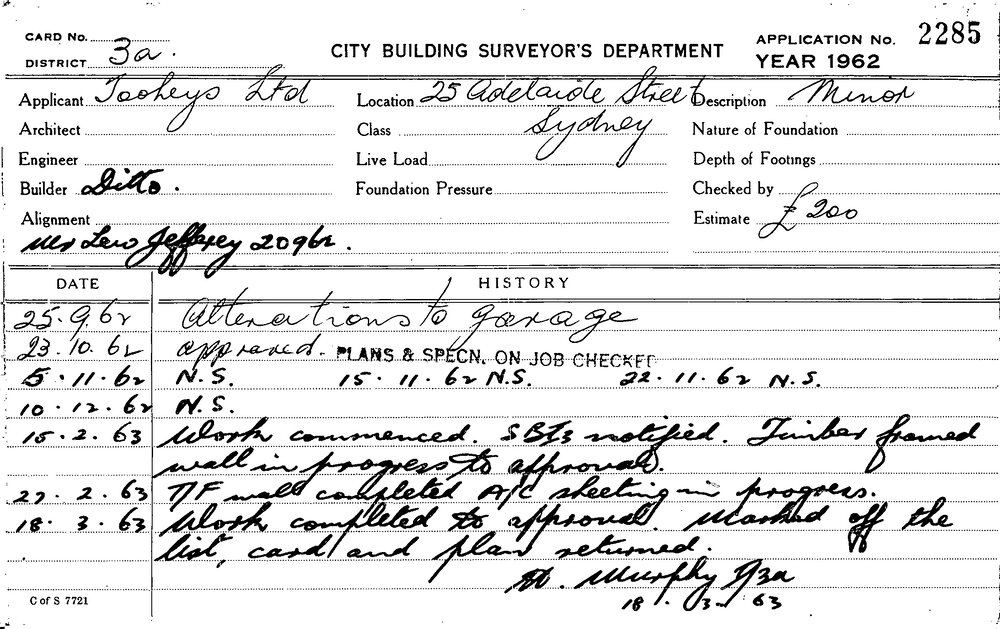 CARD No.
DISTRICT 3a.
CITY BUILDING SURVEYOR'S DEPARTMENT
APPLICATION No. 2285
YEAR 1962
Applicant Tooheys Ltd Location 25 Adelaide Street Description Minor
Architect Class Sydney Nature of Foundation
Engineer Live Load Depth of Footings
Builder Ditto. Foundation Pressure Checked by
Alignment Estimate £200
Mr Lew Jefferey 20962.
DATE HISTORY
25.9.62 Alterations to garage
23.10.62 approved. PLANS & SPECN. ON JOB CHECKED
5.11.62 N.S. 15.11.62 N.S. 22.11.62 N.S.
10.12.62 N.S.
15.2.63 Work commenced. notified. Timber framed
wall in progress to approval.
27.2.63 T/F wall completed A/C sheeting in progress.
18.3.63 Work completed to approval. Marked off the
list, card and plan returned.
Murphy 3a
18.3.63
C of S 7721